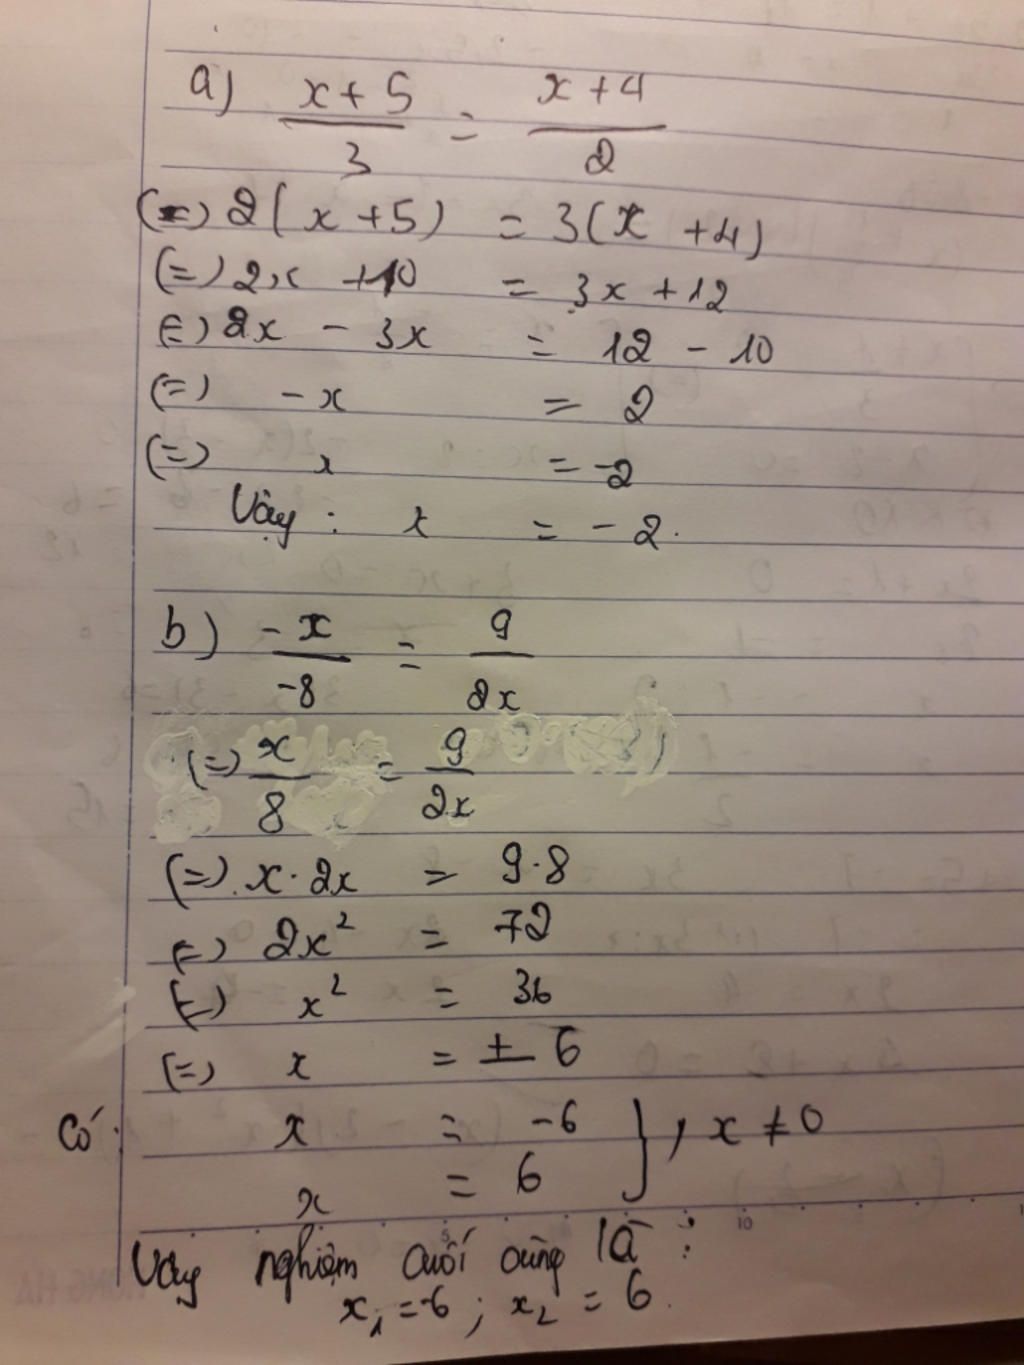 a) x+5/3 = x+4/2
(=) 2(x+5) = 3(x+4)
(=) 2x +10 = 3x+12
(=) 2x - 3x = 12 - 10
(=) -x = 2
(=) x = -2
Vậy : x = -2.
b) -x/-8 = 9/2x
(=) x/8 = 9/2x
(=) x·2x = 9·8
(=) 2x² = 72
(=) x² = 36
(=) x = ± 6
Có: x = -6 }, x ≠ 0
x = 6
Vậy nghiệm cuối cùng là :
x₁ = -6 ; x₂ = 6.